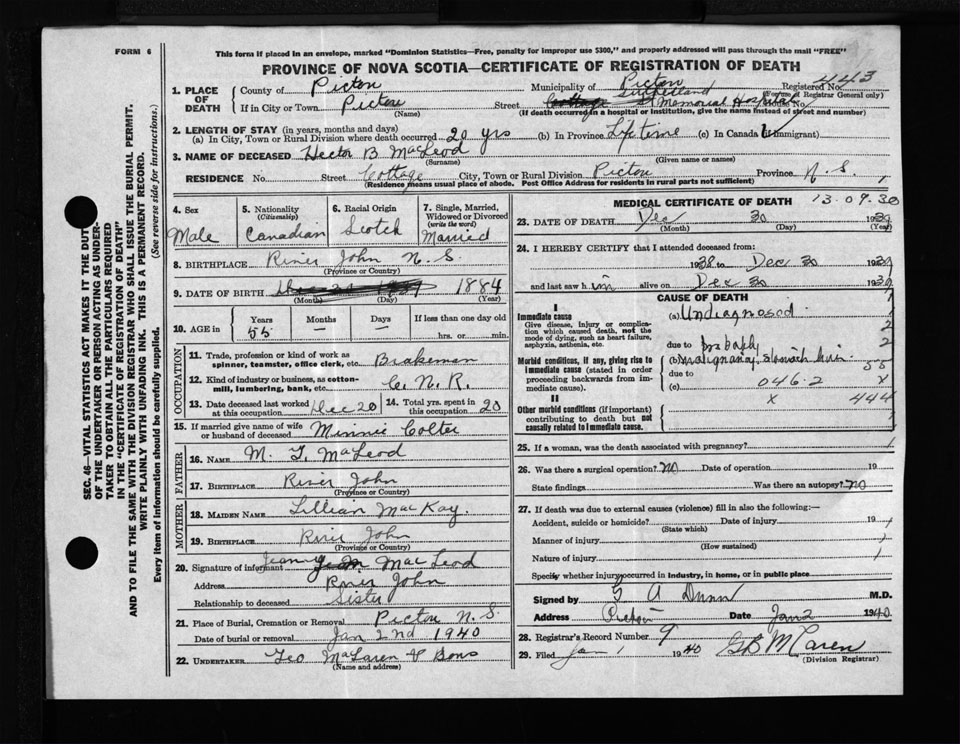 FORM 6
This form if placed in an envelope, marked "Dominion Statistics—Free, penalty for improper use $300," and properly addressed will pass through the mail "FREE"
PROVINCE OF NOVA SCOTIA—CERTIFICATE OF REGISTRATION OF DEATH
443
1. PLACE OF DEATH
County of Pictou
Municipality of Pictou
Registered No.
(For use of Registrar General only)
If in City or Town Pictou
(Name)
Sutherland
Street Cottage St Memorial Hospital House No.
(If death occurred in a hospital or institution, give the name instead of street and number)
2. LENGTH OF STAY (in years, months and days)
(a) In City, Town or Rural Division where death occurred 20 yrs (b) In Province Lifetime (c) In Canada (if immigrant)
3. NAME OF DECEASED Hector B MacLeod
(Surname) (Given name or names)
RESIDENCE No. Street Cottage City, Town or Rural Division Pictou Province N.S. 1
(Residence means usual place of abode. Post Office Address for residents in rural parts not sufficient)
4. Sex
Male
5. Nationality
(Citizenship)
Canadian
6. Racial Origin
Scotch
7. Single, Married, Widowed or Divorced
(write the word)
Married
8. BIRTHPLACE River John N.S.
(Province or Country)
9. DATE OF BIRTH 1884
(Month) (Day) (Year)
10. AGE in
Years Months Days If less than one day old
55 — — hrs. or min.
OCCUPATION
11. Trade, profession or kind of work as spinner, teamster, office clerk, etc. Brakeman
12. Kind of industry or business, as cotton-mill, lumbering, bank, etc. C.N.R.
13. Date deceased last worked at this occupation Dec 20
14. Total yrs. spent in this occupation 20
15. If married give name of wife or husband of deceased Minnie Colter
FATHER
16. NAME M. T. MacLeod
17. BIRTHPLACE River John
(Province or Country)
MOTHER
18. MAIDEN NAME Lillian MacKay.
19. BIRTHPLACE River John
(Province or Country)
20. Signature of informant MacLeod
Address River John
Relationship to deceased Sister
21. Place of Burial, Cremation or Removal Pictou N.S.
Date of burial or removal Jan 2nd 1940
22. UNDERTAKER Geo MacLaren & Sons
MEDICAL CERTIFICATE OF DEATH
13.09.30
23. DATE OF DEATH Dec 30 1939
(Month) (Day) (Year)
24. I HEREBY CERTIFY that I attended deceased from:
1938 to Dec 30 1939
and last saw him alive on Dec 30 1939
CAUSE OF DEATH
I
Immediate cause
Give disease, injury or complication which caused death, not the mode of dying, such as heart failure, asphyxia, asthenia, etc.
(a) Undiagnosed
due to Probably
Morbid conditions, if any, giving rise to immediate cause (stated in order proceeding backwards from immediate cause).
(b) Malignancy, Stomach
due to
(c) 046.2
x 444
II
Other morbid conditions (if important) contributing to death but not causally related to immediate cause.
1
2
2
55
25. If a woman, was the death associated with pregnancy?
26. Was there a surgical operation? No Date of operation 19
State findings Was there an autopsy? No
27. If death was due to external causes (violence) fill in also the following:—
Accident, suicide or homicide? Date of injury 19
(State which)
Manner of injury
(How sustained)
Nature of injury
Specify whether injury occurred in industry, in home, or in public place
Signed by G A Dunn M.D.
Address Pictou Date Jan 2 1940
28. Registrar's Record Number 9
29. Filed Jan 1 1940
(Division Registrar)
SEC. 46—VITAL STATISTICS ACT MAKES IT THE DUTY
OF THE UNDERTAKER OR PERSON ACTING AS UNDER-
TAKER TO OBTAIN ALL THE PARTICULARS REQUIRED
IN THE "CERTIFICATE OF REGISTRATION OF DEATH"
AND TO FILE THE SAME WITH THE DIVISION REGISTRAR WHO SHALL ISSUE THE BURIAL PERMIT.
WRITE PLAINLY WITH UNFADING INK. THIS IS A PERMANENT RECORD.
Every item of information should be carefully supplied. (See reverse side for instructions.)